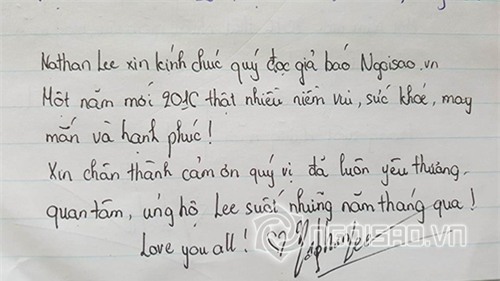 Nathan Lee xin kính chúc quý đọc giả báo Ngoisao.vn
Một năm mới 2016 thật nhiều niềm vui, sức khoẻ, may
mắn và hạnh phúc!
Xin chân thành cảm ơn quý vị đã luôn yêu thương,
quan tâm, ủng hộ Lee suốt những năm tháng qua!
Love you all! ♡ Nathan Lee
NGOISAO.VN